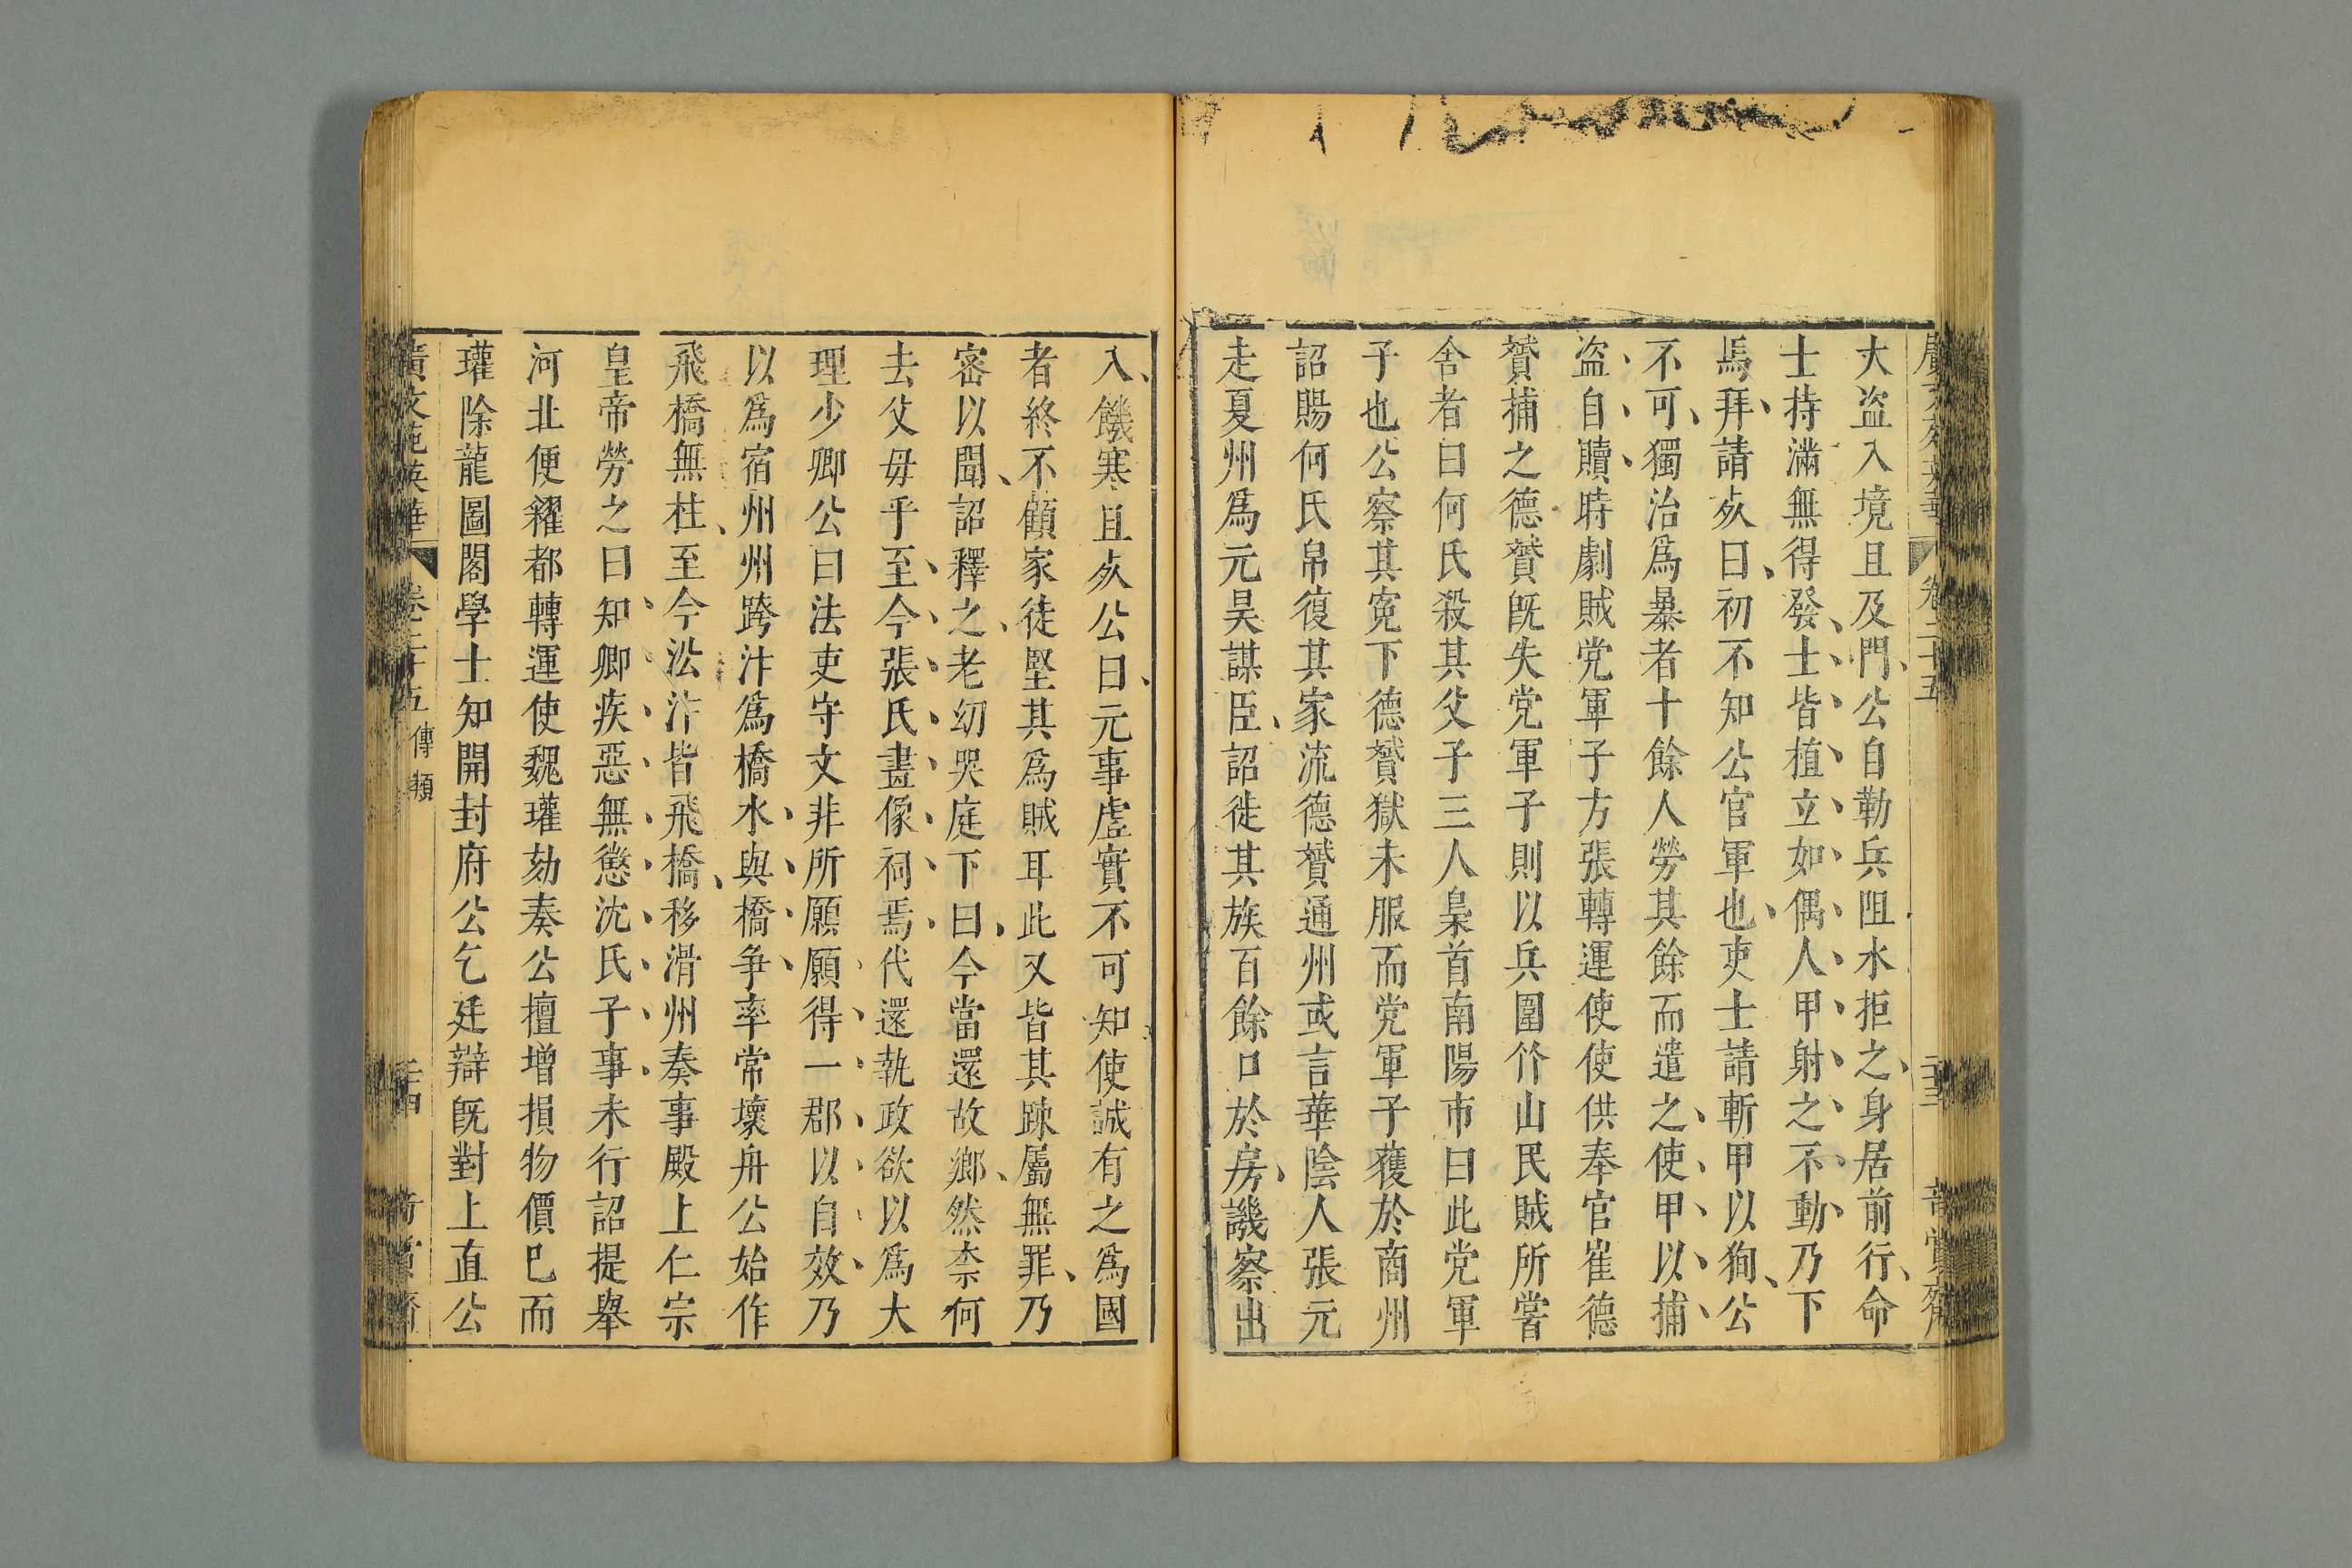 大盜入境且及門公自勒兵阻水拒之身居前行命
士持滿無得發士皆植立如偶人甲射之不動乃下
馬拜請死曰初不知公官軍也吏士請斬甲以狥公
不可獨治爲暴者十餘人勞其餘而遣之使甲以捕
盜自贖時劇賊党軍子方張轉運使使供奉官崔德
贇捕之德贇旣失党軍子則以兵圍竹山民賊所嘗
舍者曰何氏殺其父子三人梟首南陽市曰此党軍
子也公察其寃下德贇獄未服而党軍子獲於商州
詔賜何氏帛復其家流德贇通州或言華陰人張元
走夏州爲元昊謀臣詔徙其族百餘口於房譏察出
卷二十五
入饑寒且死公曰元事虛實不可知使誠有之爲國
者終不顧家徒堅其爲賊耳此又皆其疎屬無罪乃
密以聞詔釋之老幼哭庭下曰今當還故鄉然柰何
去父母乎至今張氏畫像祠焉代還執政欲以爲大
理少卿公曰法吏守文非所願願得一郡以自效乃
以爲宿州州跨汴爲橋水與橋争率常壞舟公始作
飛橋無柱至今㳂汴皆飛橋移滑州奏事殿上仁宗
皇帝勞之曰知卿疾惡無懲沈氏子事未行詔提舉
河北便糴都轉運使魏瓘劾奏公擅增損物價巳而
瓘除龍圖閣學士知開封府公乞廷辯旣對上直公
廣文苑英華
卷二十五
傳類